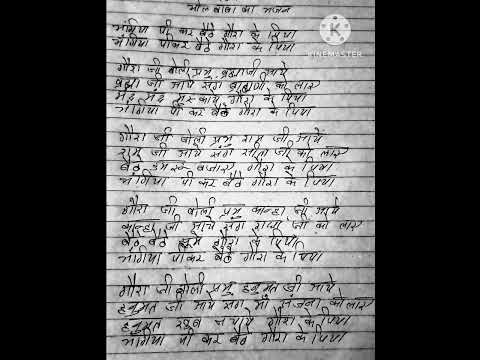 भोले बाबा का भजन
KINEMASTER
भंगिया पी कर बैठे गौरा के पिया
भंगिया पीकर बैठे गौरा के पिया
गौरा जी बोली प्रभु ब्रह्मा जी आये
ब्रह्मा जी आये संग ब्राह्मणी को लाए
मंद मंद मुस्काये गौरा के पिया
भंगिया पी कर बैठे गौरा के पिया
गौरा जी बोली प्रभु राम जी आये
राम जी आये संग सीता जी को लाए
बैठे डमरू बजाए गौरा के पिया
भंगिया पी कर बैठे गौरा के पिया
गौरा जी बोली प्रभु कान्हा जी आये
कान्हा जी आये संग राधा जी को लाए
बैठे बैठे झूमे गौरा के पिया
भंगिया पीकर बैठे गौरा के पिया
गौरा जी बोली प्रभु हनुमत जी आये
हनुमत जी आये संग माँ अंजना को लाए
हनुमत खूब नचाये गौरा के पिया
भंगिया पी कर बैठे गौरा के पिया